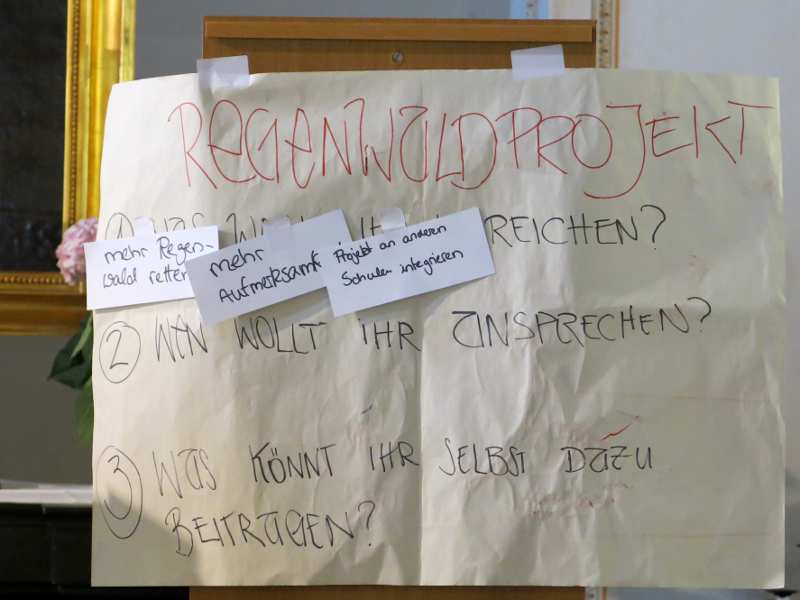 REGENWALDPROJEKT
① WAS WOLLT IHR REICHEN?
mehr Regen-
wald retten
mehr
Aufmerksamk
Projekt an anderen
Schulen integrieren
② WEN WOLLT IHR ANSPRECHEN?
③ WAS KÖNNT IHR SELBST DAZU
BEITRAGEN?